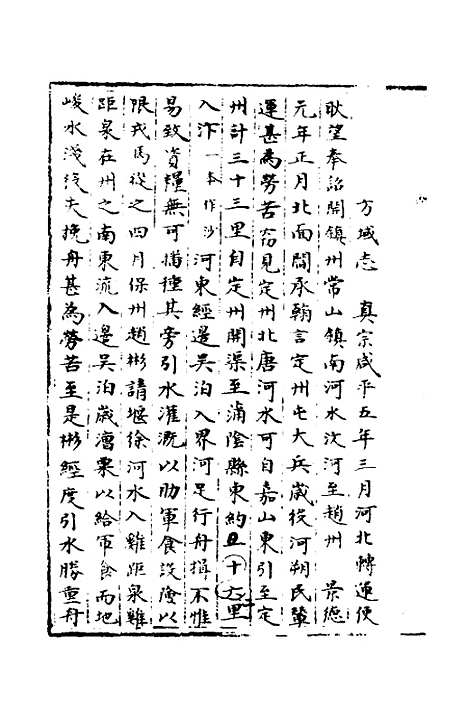 方域志　真宗咸平五年三月河北轉運使
耿望奉詔開鎮州常山鎮南河水汶河至趙州　景德
元年正月北面閻承翰言定州屯大兵歲役河朔民輦
運甚為勞苦竊見定州北唐河水可自嘉山東引至定
州計三十三里自定州開渠至蒲陰縣東約六十六里
入汴一本作沙河東經邊吳泊入界河足行舟楫不惟
易致資糧無可播種其旁引水灌溉以助軍食設險以
限戎馬從之四月保州趙彬請堰徐河水入雞距泉雞
距泉在州之南東流入邊吳泊歲漕粟以給軍食而地
峻水淺役夫挽舟甚為勞苦至是彬經度引水勝重舟